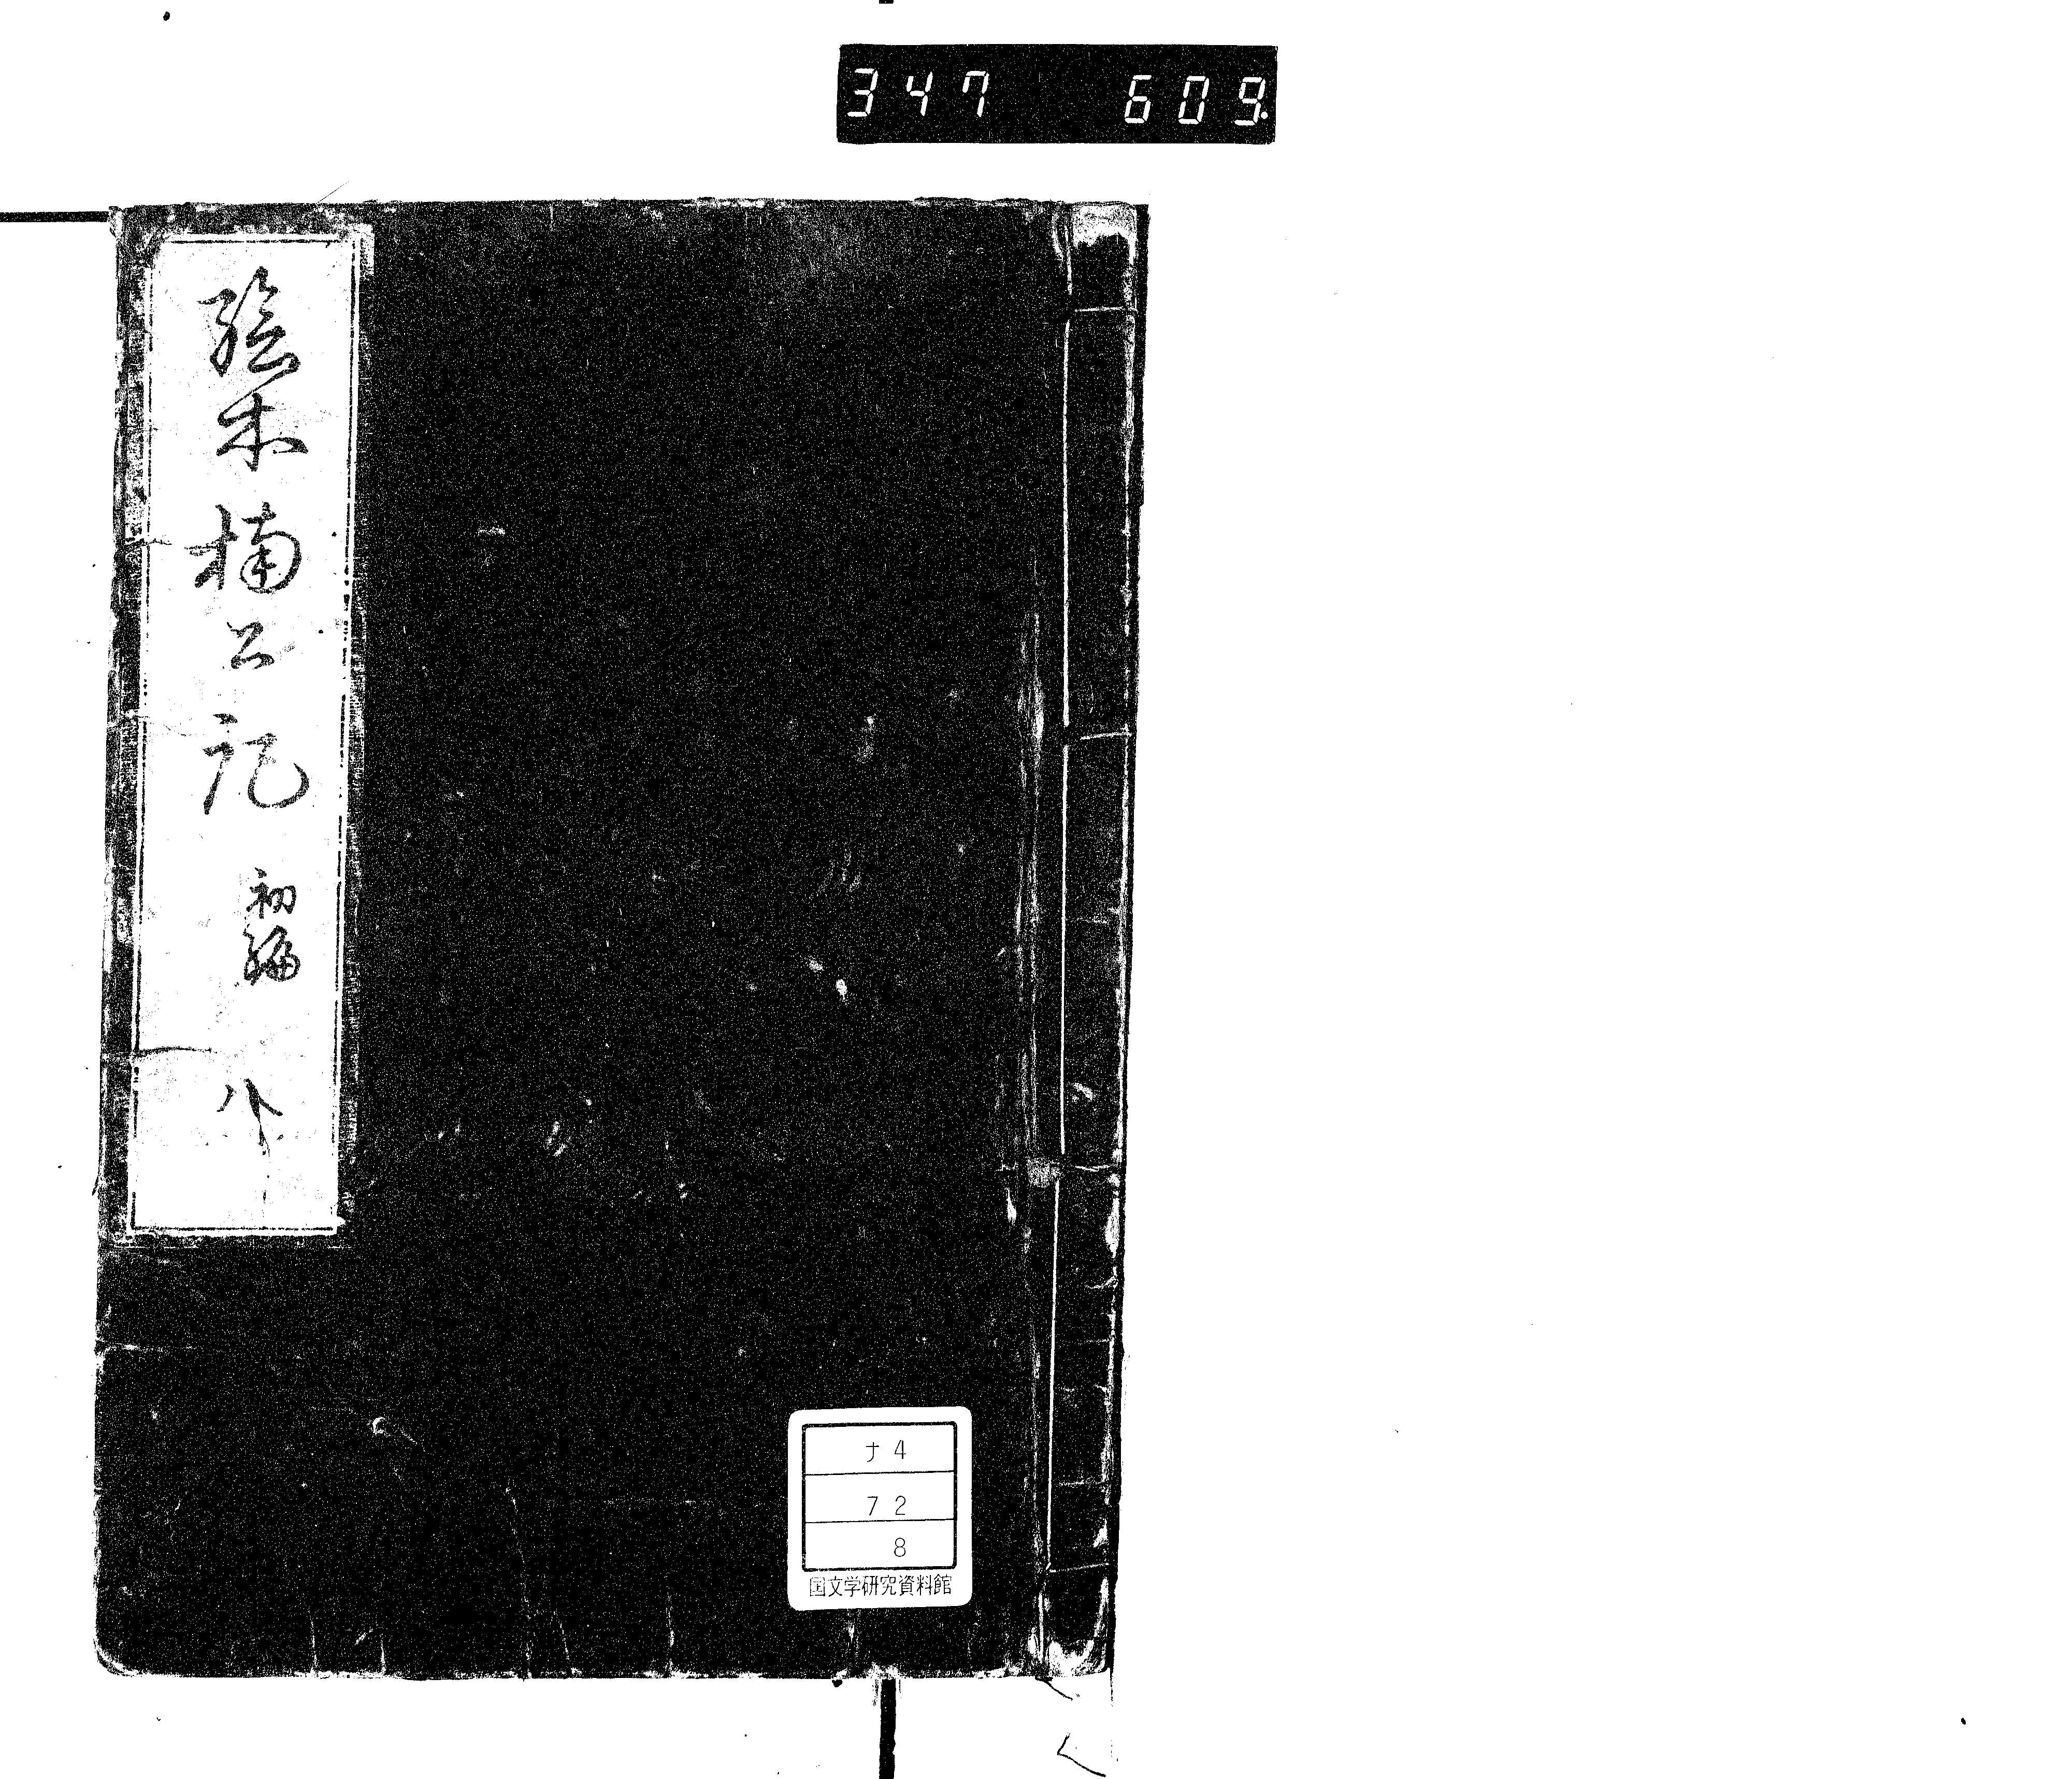 347 609.
絵本楠公記 初編 八
ナ4
72
8
国文学研究資料館